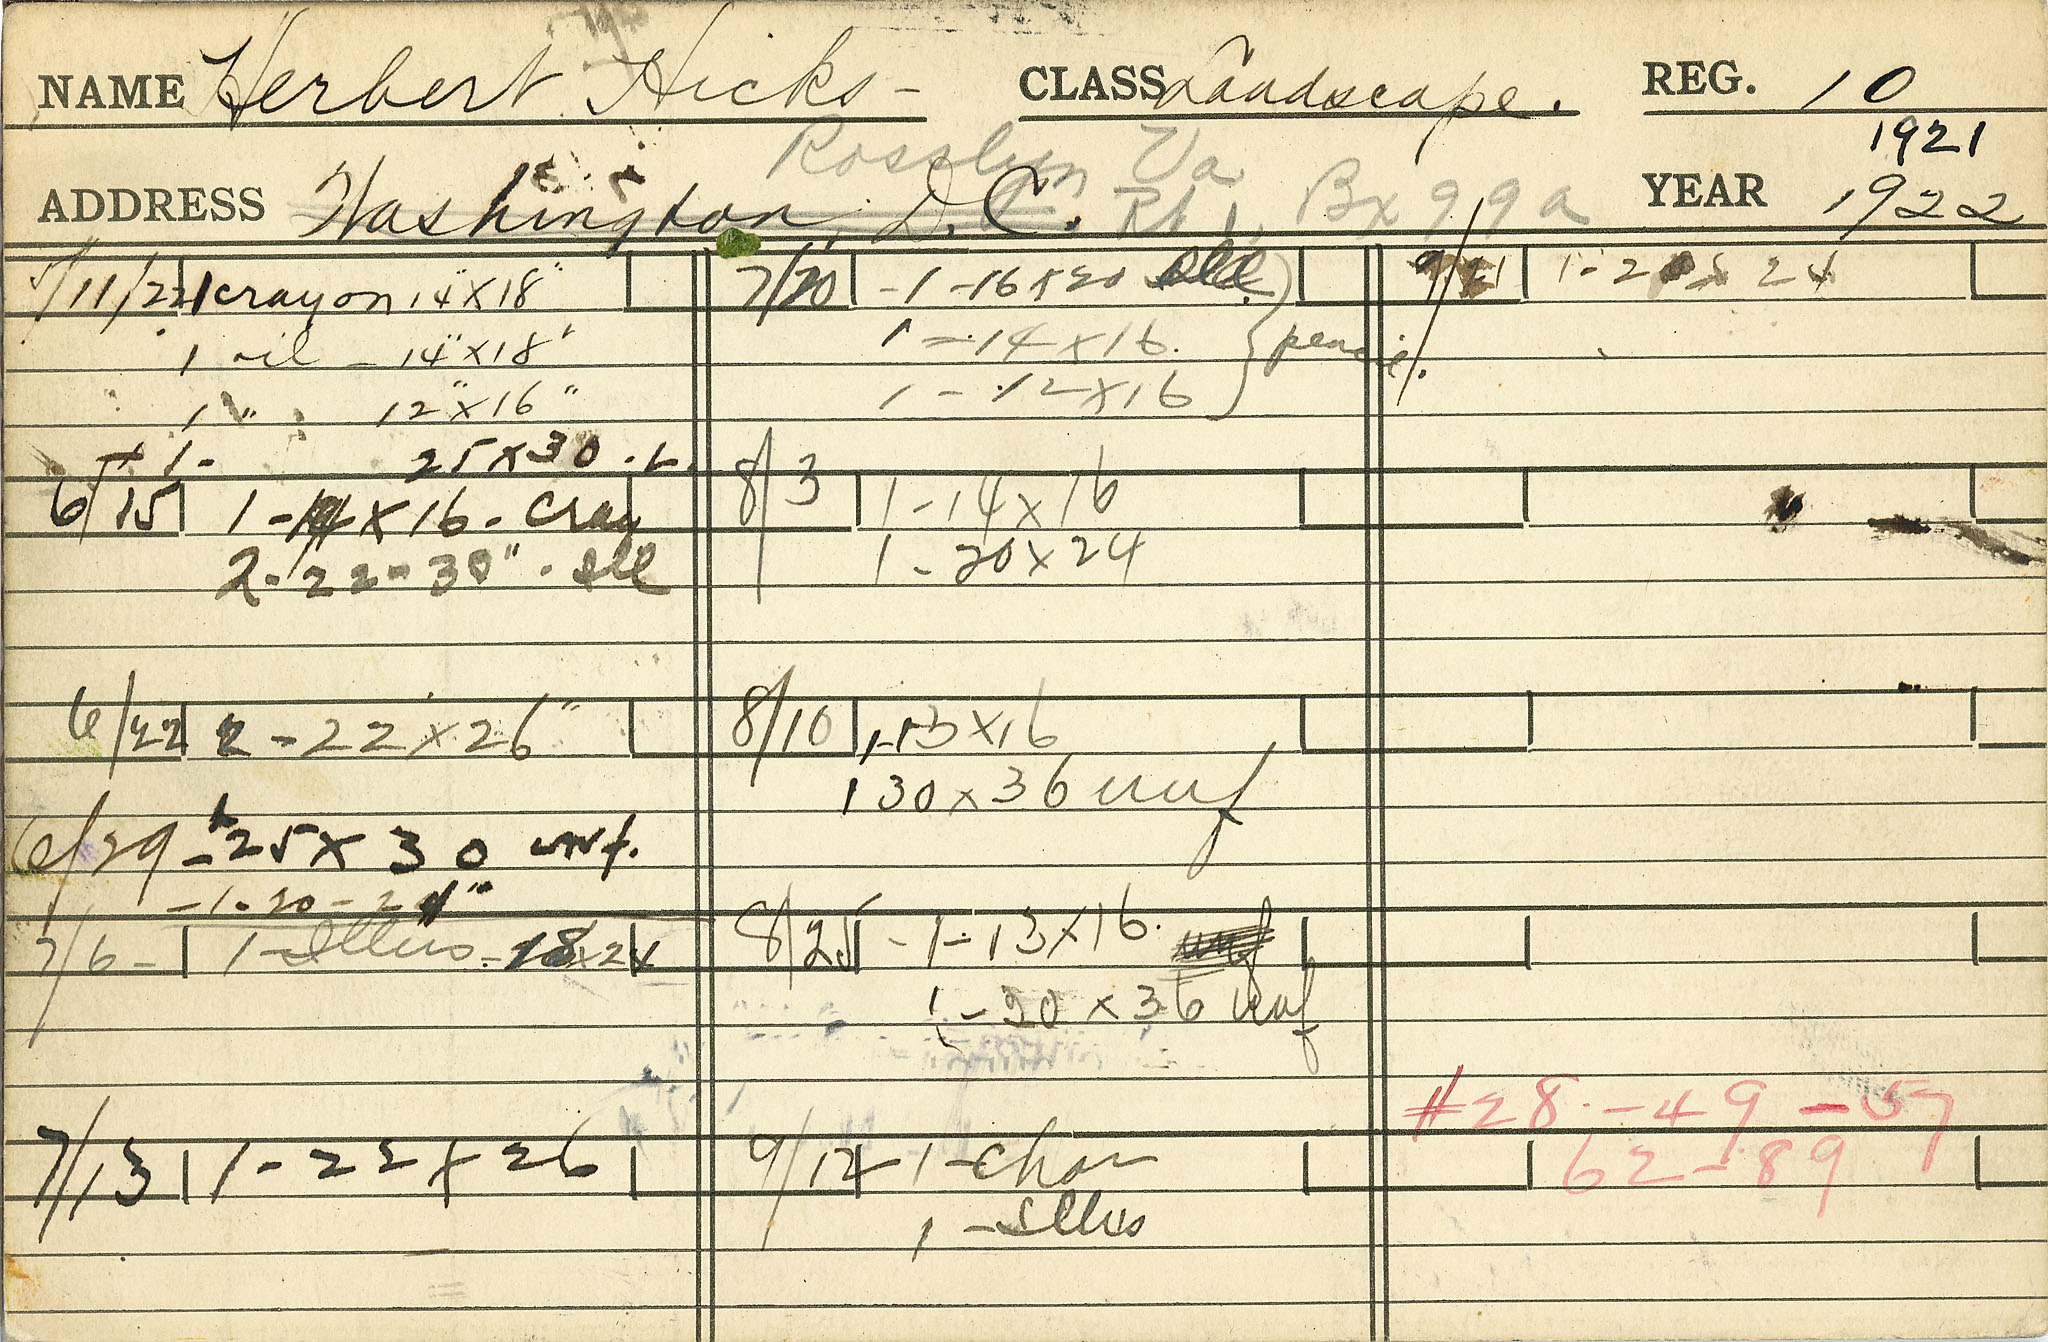 NAME Herbert Hicks - CLASS Landscape. REG. 10
1921
Rosslyn Va
ADDRESS Washington, D.C. Rt 1, Bx 99a YEAR 1922
5/11/22 1 crayon 14"x18"
1 oil - 14"x18"
1 " 12"x16"
1 - 25x30 . L.
6/15 1 - 14x16 - Cray
2 - 22 - 30" - Ill
6/22 2 - 22x26"
6/29 - 1 25x30 unf.
- 1 - 20 - 24"
7/6 - 1 - Illus - 18x24
7/13 1 - 22x26
7/20 - 1 - 16x20 Ill
1 - 14x16. } pencil.
1 - 12x16
8/3 1 - 14x16
1 - 20x24
8/10 1 - 13x16
1 30x36 unf
8/25 - 1 - 13x16. unf
1 - 30x36 unf
9/12 - 1 - Char
1 - Illus
9/21 1 - 20x24
#28 - 49 - 57
62 - 89